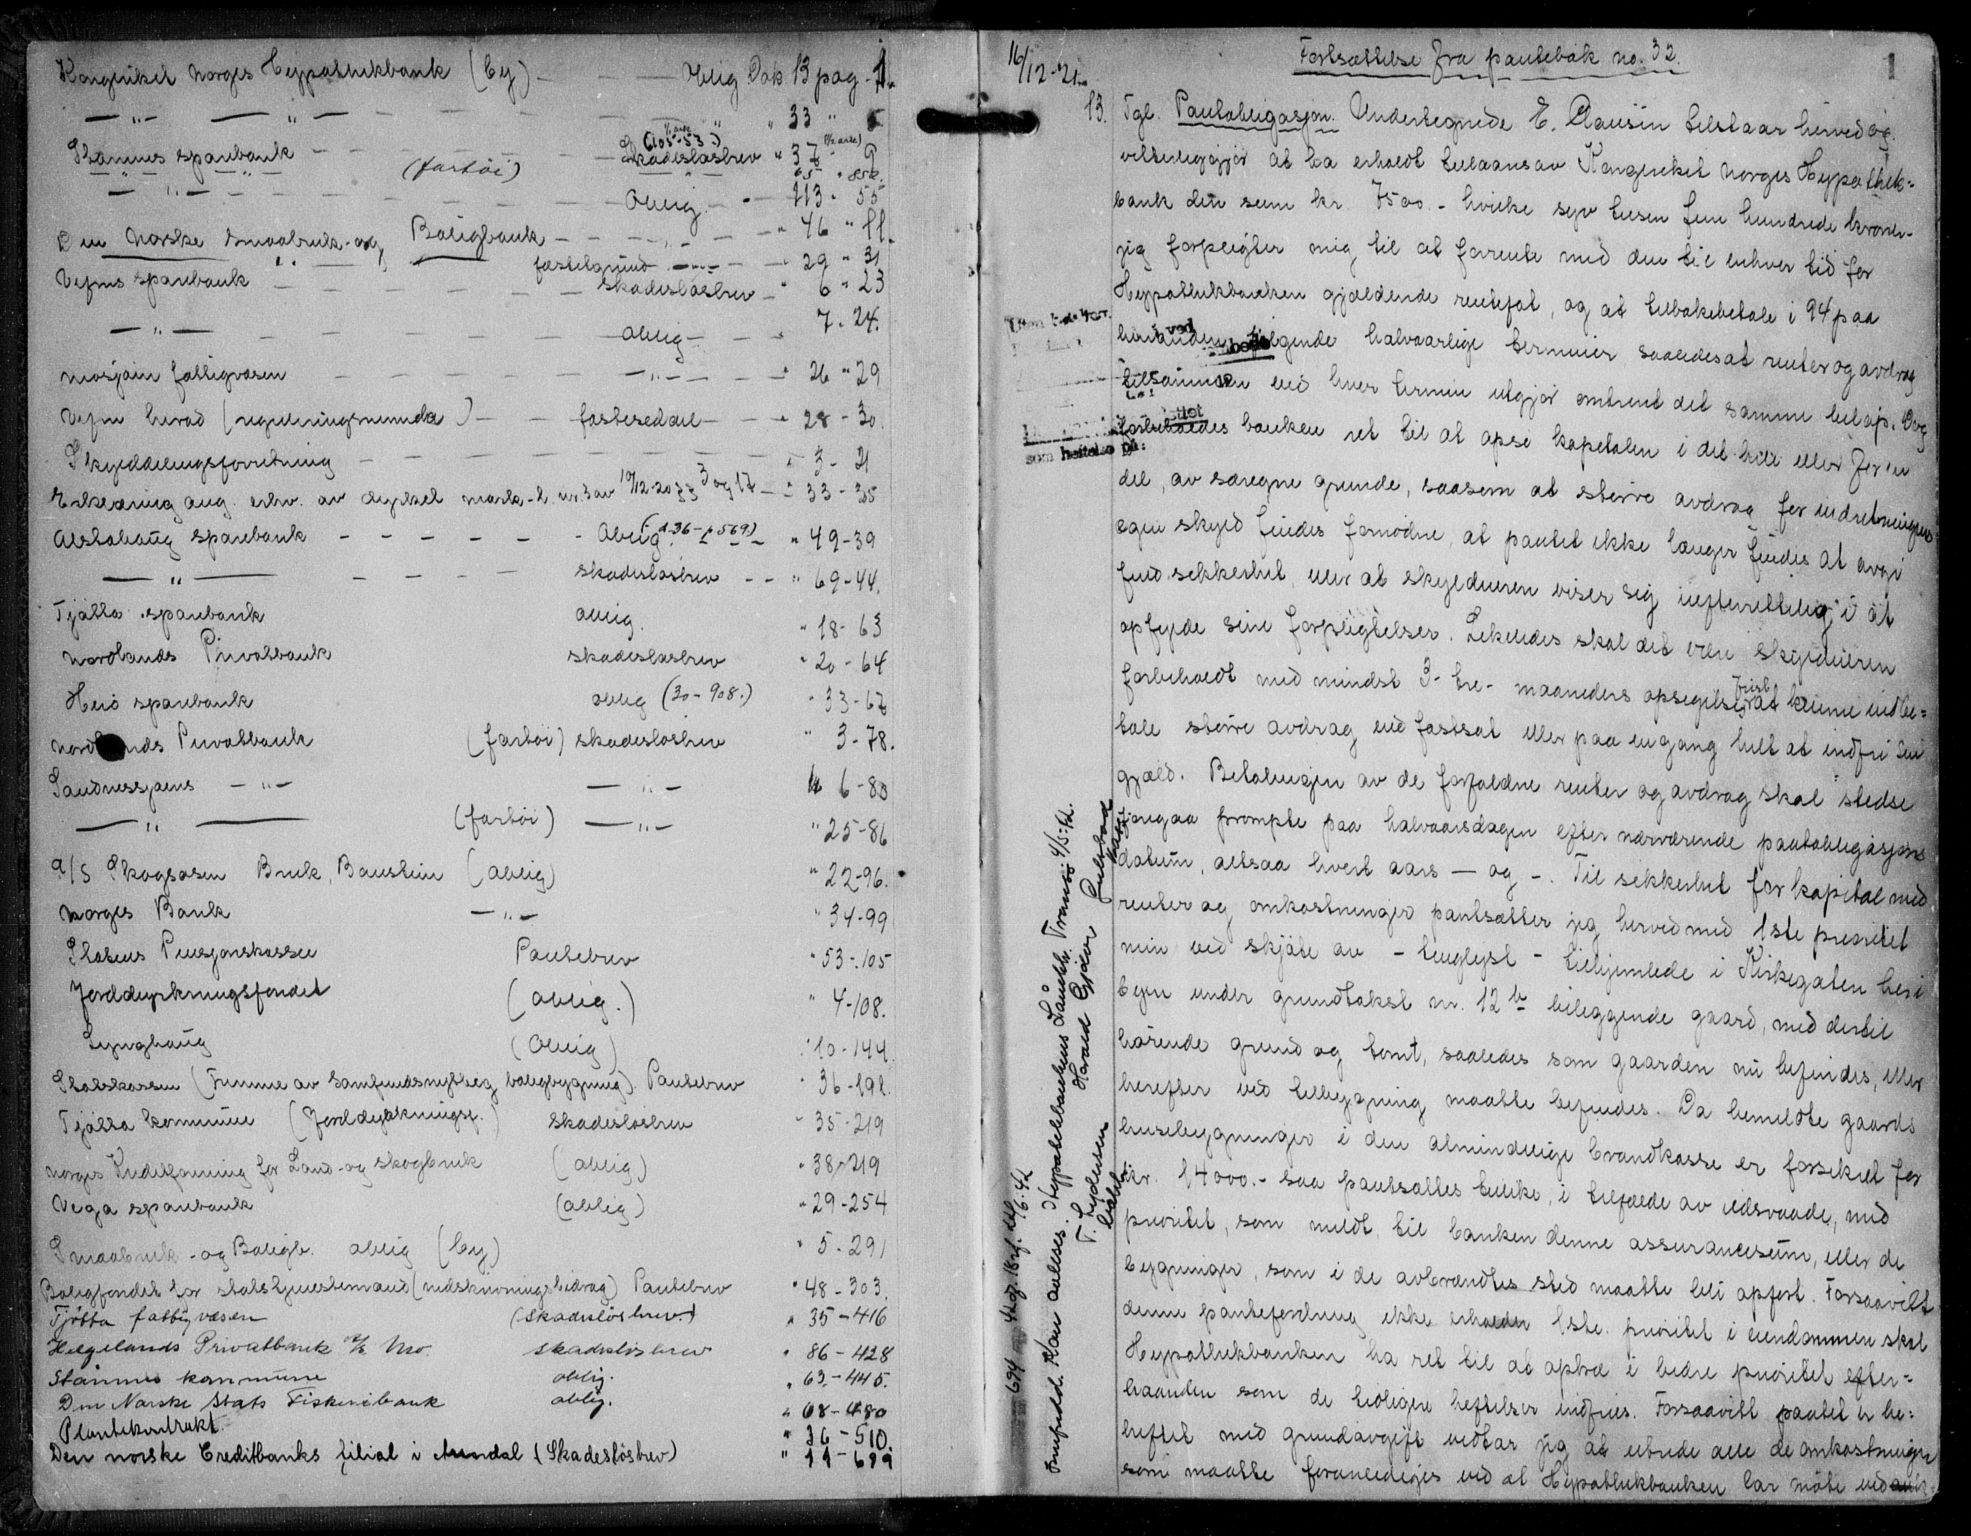 Kongeriket Norges Hypothekbank (by) — Oblig Dok 13 pag - 1.
— " — " — " 33 " 5
(105-53)
Stamnes sparebank — — Skadesløsbrev " 37 " 9
(fartöi) 65 " 852.
— " — Oblig. " 113 - 55
Den Norske Smaabruk- og Boligbank — " — " 46 " 11.
" fæstegrund — " — " 29 " 31
Vefsns sparebank — skadesløsbrev — " 6 " 23
— " — oblig — 7 - 24.
Mosjøin fattigvæsen — " — " 26 " 29
Vefsn herad (reguleringsnemnda) — fæsteseddel — " 28 - 30.
Skylddelingsforretning — " 3 - 21
Erklæring ang. erhv. av dyrket mark - l. nr. 3 av 10/12-20 §§ 3 og 17 — " 33 - 35
Alstahaug sparebank — Oblig (136-569) " 49-39
— " — skadesløsbrev — " 69-44.
Tjøtta sparebank oblig. " 18-63
Nordlands Privatbank skadesløsbrev " 20-64
Herö sparebank oblig (30-908.) " 33-67
Nordlands Privatbank (fartöi) skadesløsbrev " 3-78.
Sandnessjøens — " — — " — 6-80
— " — (fartöi) — " — " 25-86
A/S Skogsøsen Bruk, Baustein (oblig) " 22-96.
Norges Bank — " — " 34-99
Statens Pensjonskasse Pantebrev " 53-105
Jorddyrkningsfondet (oblig.) " 4-108.
Lynghaug (oblig) " 10-144.
Statskassen (Fremme av samfundsnyttig boligbygning). Pantebrev " 36-191.
Tjøtta kommune (Jorddyrkningsf.) skadesløsbrev " 35-219
Norges Kreditforening for Land- og skogbruk (oblig) " 38-219
Vega sparebank (oblig) " 29-254
Smaabruk - og Boligb. oblig (by) " 5-291
Boligfondet for statstjenestemænd (nedskrivningsbidrag) Pantebrev " 48-303.
Tjötta fattigvæsen (Skadeslösbrev) " 35-416
Helgelands Privatbank A/S Mo. skadeslösbrev " 86-428
Stamnes kommune oblig. " 63-445.
Den Norske Stats Fiskeribank oblig. " 68-480
Plantekontrakt. " 36-510.
Den norske Creditbanks filial i Arendal (Skadeslösbrev) " 11-699
16/12-21. Fortsættelse fra pantebok no. 32. 1
13. Tgl. Pantobligasjon. Undertegnede E. Clausin tilstaar herved og
vitterliggjør at ha erholdt tillaans av Kongeriket Norges Hypothek-
bank den sum kr. 7500.- hvilke syv tusen fem hundrede kroner
jeg forpligter mig til at forrente med den til enhver tid for
Hypothekbanken gjældende rentefot, og at tilbakebetale i 94 paa
hinanden følgende halvaarlige terminer saaledes at renter og avdrag
tilsammen ved hver termin utgjør omtrent det samme beløp. Dog
forbeholdes banken ret til at opsi kapitalen i det hele eller for en
del, av særegne grunde, saasom at større avdrag for indretningens
egen skyld findes fornødne, at pantet ikke længer findes at avgi
fuld sikkerhet, eller at skyldneren viser sig uefterrettelig i at
opfylde sine forpligtelser. Likeledes skal det være skyldneren
forbeholdt med mindst 3- tre- maaneders opsigelsesfrist at kunne indbe-
tale større avdrag end fastsat eller paa engang helt at indfri sin
gjæld. Betalingen av de forfaldne renter og avdrag skal stedse
foregaa prompte paa halvaarsdagen efter nærværende pantobligasjons
datum, altsaa hvert aars — og —. Til sikkerhet for kapital med
renter og omkostninger pantsætter jeg herved med 1ste prioritet
min ved skjøte av - tinglyst - tilhjemlede i Kirkegaten her i
byen under grundtakst nr. 12 b beliggende gaard, med dertil
hørende grund og tomt, saaledes som gaarden nu befindes, eller
herefter ved tilbygning maatte befindes. Da bemeldte gaards
husebygninger i den almindelige brandkasse er forsikret for
kr. 14000.- saa pantsættes tillike, i tilfælde av ildsvaade, med
prioritet, som meldt, til banken denne assurancesum, eller de
bygninger, som i de avbrændtes sted maatte bli opført. Forsaavidt
denne pantefordring ikke erholder 1ste prioritet i eiendommen skal
Hypothekbanken ha ret til at optræ i bedre prioritet efter-
haanden som de tidligere heftelser indfries. Forsaavidt pantet er be-
heftet med grundavgift vedtar jeg at utrede alle de omkostninger
som maatte foranlediges ved at Hypothekbanken lar møte ved auk-
som heftelse på:
694 4 aug. 18 rf. dbf. 1/6. 42
Innfridd. Kan avlyses. Hypotekbankens Lånektr. Tromsö 4/5-42.
T. Lydersen Harald Gjöen Gulstad